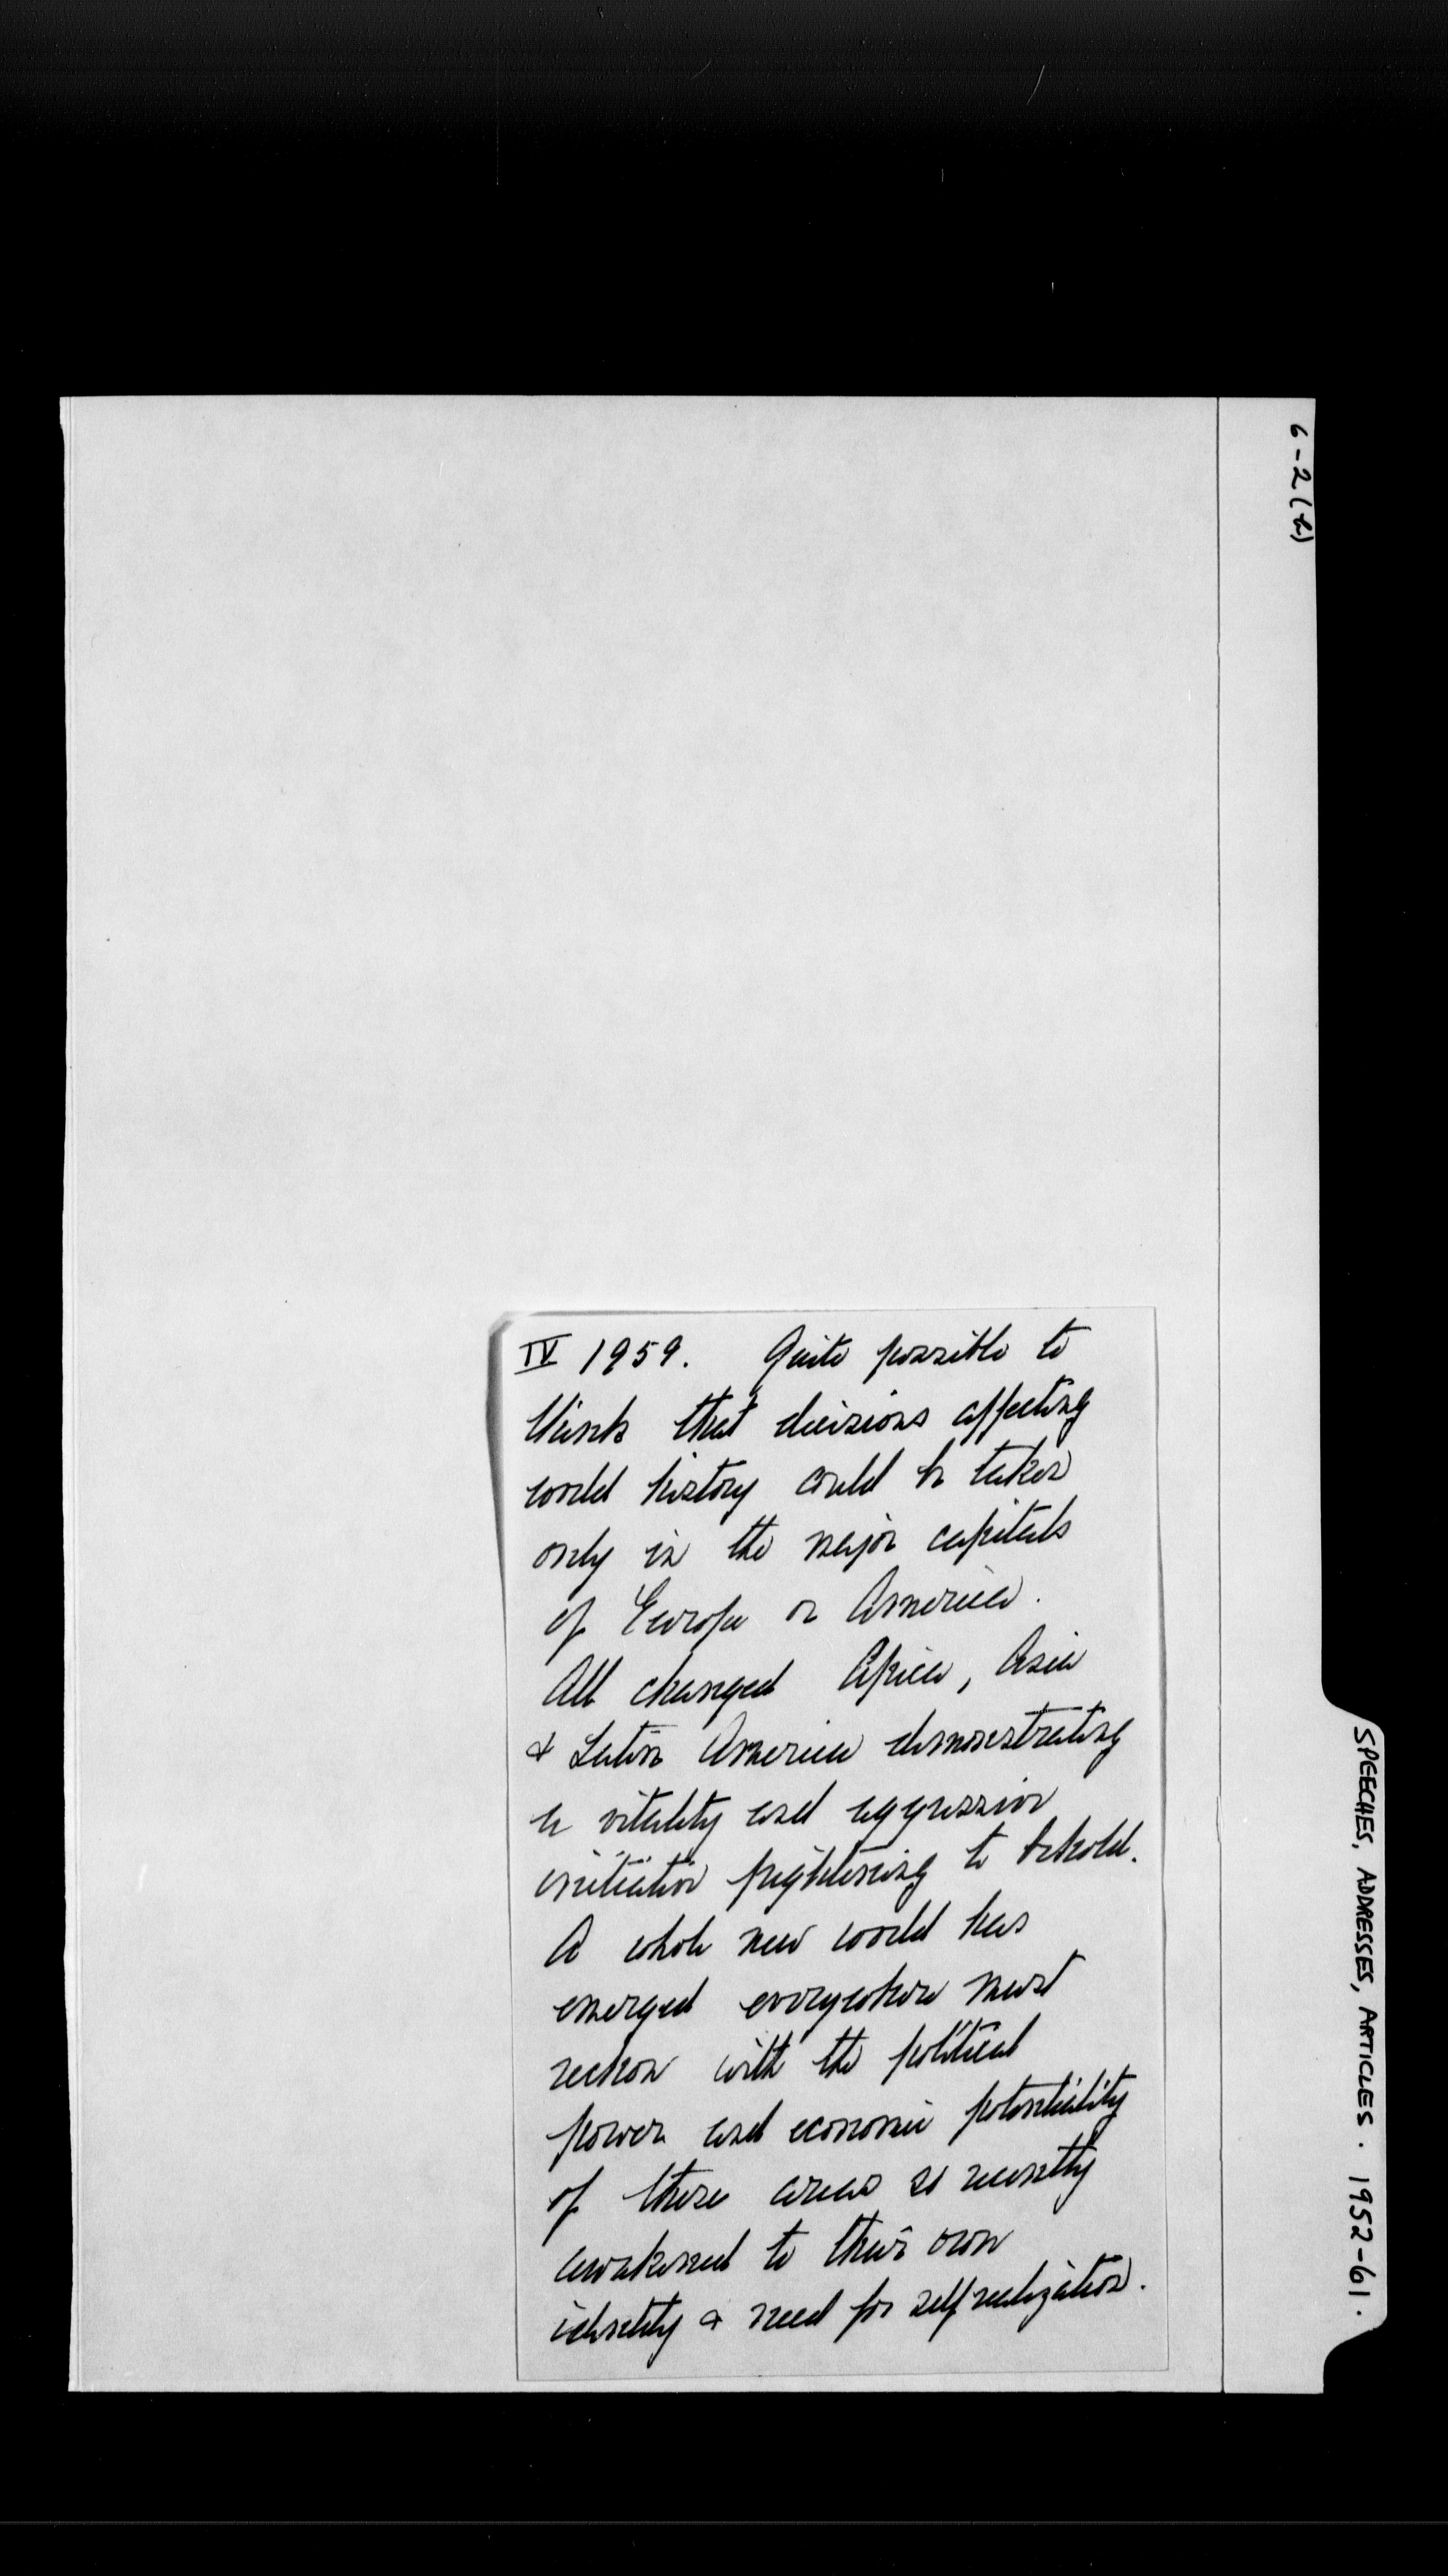 6-2(h)
SPEECHES, ADDRESSES, ARTICLES. 1952-61.
IV 1959. Quite possible to
think that decisions affecting
world history could be taken
only in the major capitals
of Europe or America.
All changed Africa, Asia
& Latin America demonstrating
a vitality and aggression
initiative frightening to behold.
A whole new world has
emerged everywhere must
reckon with the political
power and economic potentiality
of these areas so recently
awakened to their own
identity & need for self realization.